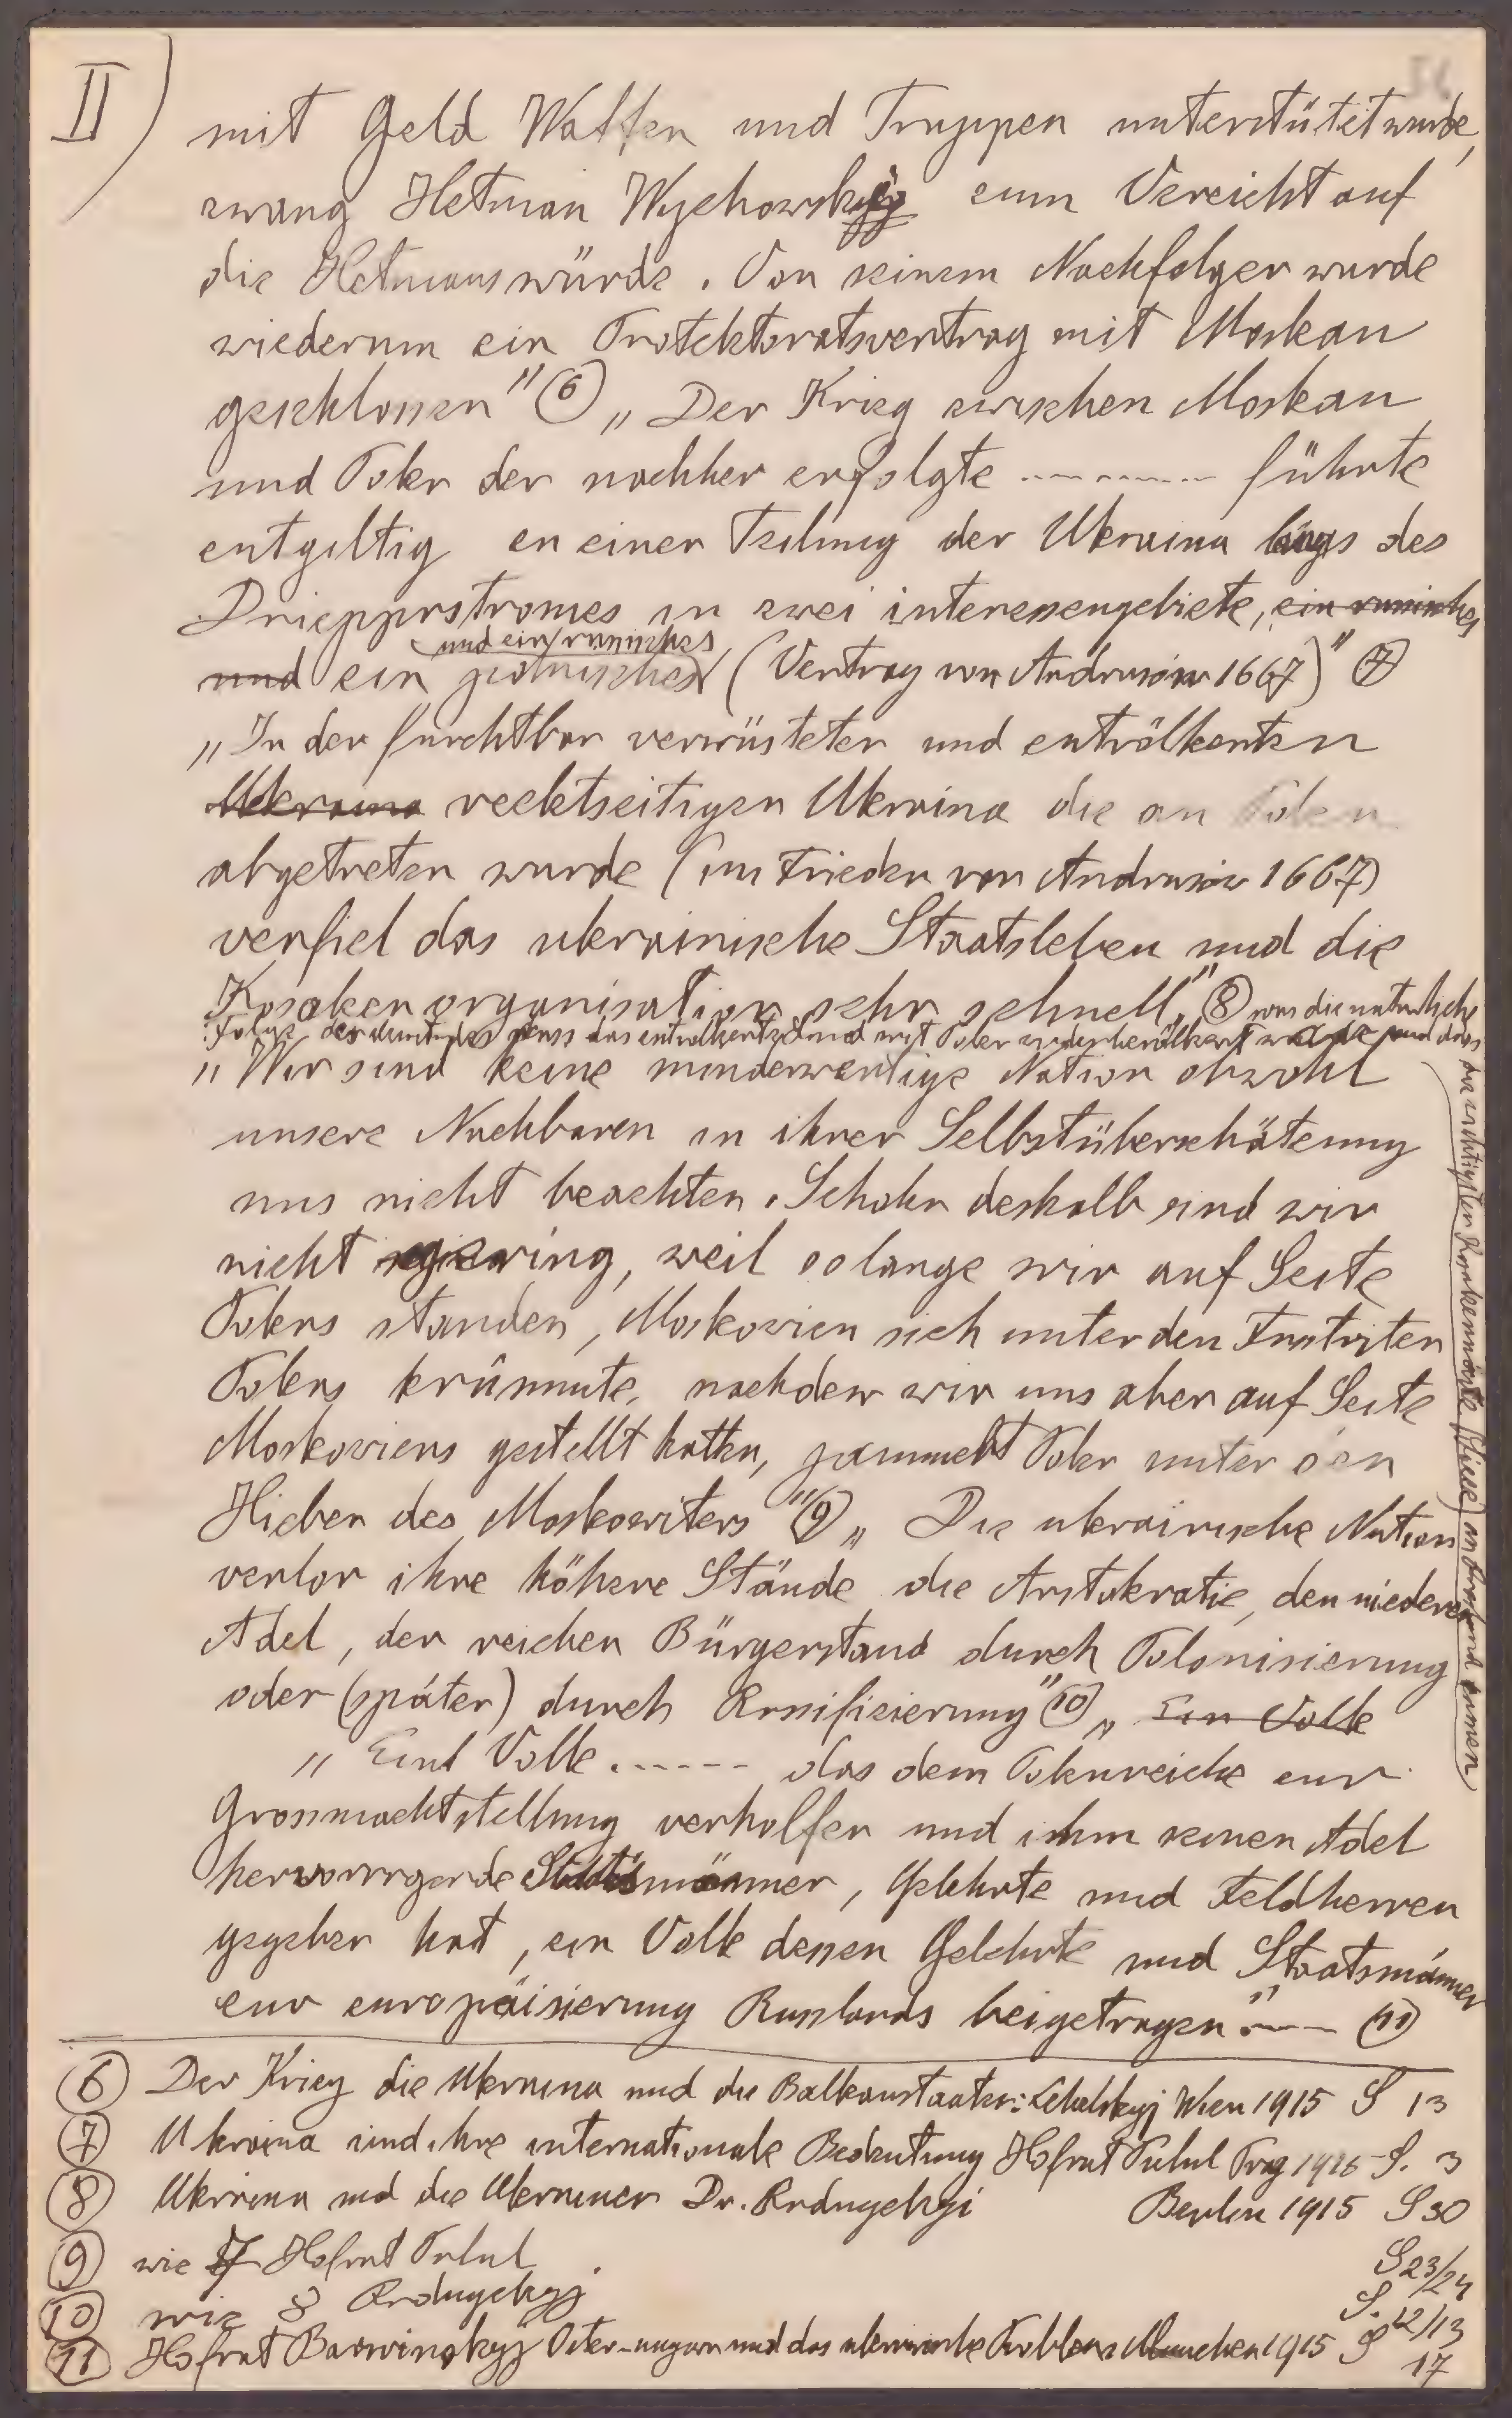 II)
mit Geld Waffen und Truppen unterstütet wurde,
zwang Hetman Wychowskyj zum Vereicht auf
die Hetmanswürde. Von seinem Nachfolger wurde
wiederum ein Protektoratsvertrag mit Moskau
geschlossen" ⑥ „Der Krieg zwischen Moskau
und Polen der nachher erfolgte ---------- führte
entgiltig zu einer Teilung der Ukraina längs des
Drieppрstromes in zwei interessengebiete, ein russisches
und ein russisches
und ein polnisches (Vertrag von Andrusiw 1667)" ⑦
„In der furchtbar verwüsteten und entvölkerten
Ukraina rechtseitigen Ukraina die an Polen
abgetreten wurde (im Frieden von Andrusiw 1667)
verfiel das ukrainische Staatsleben und die
Kosaken organisation sehr schnell," ⑧ was die natürliche
Folge des dass das entvölkerte und mit Polen wiederbevölkert wurde und dass
die wichtigsten Kosaken
„Wir sind keine minderwertige Nation obzwohl
unsere Nachbaren in ihrer Selbstüberschäteung
uns nicht beachten. Schohn deshalb sind wir
nicht gering, weil solange wir auf Seite
Polens standen, Moskowien sich unter den Fustriten
Polens krümmte, nachdem wir uns aber auf Seite
Moskowiens gestellt hatten, jammert Polen unter den
Hieben des Moskowiters" ⑨ „Die ukrainische Nation
verlor ihre höhere Stände die Aristokratie, den niederen
Adel, den reichen Bürgerstand durch Polonisierung
oder (später) durch Russifizierung" ⑩ „Ein Volk
„Eint Volk ------ das dem Polenreiche zur
Grossmachtstellung verholfen und ihm seinen Adel
hervorrrgende Staatsmänner, Gelehrte und Feldherren
gegeben hat, ein Volk dessen Gelehrte und Staatsmänner
zur europäisierung Russlands beigetragen".--- ⑪
⑥ Der Krieg die Ukraina und die Balkanstaaten: Zehelskyj Wien 1915 S 13
⑦ Ukraina und ihre internationale Bedeutung Hofrat Puluj Prag 1916 S. 3
⑧ Ukraina und die Ukrainer Dr. Rudnyckyj Berlin 1915 S 30
⑨ wie 7 Hofrat Puluj S 23/24
⑩ wie 8 Rudnyckyj S. 12/13
⑪ Hofrat Barwinskyj Öster-ungarn und das ukrainische Problem München 1915 S 17